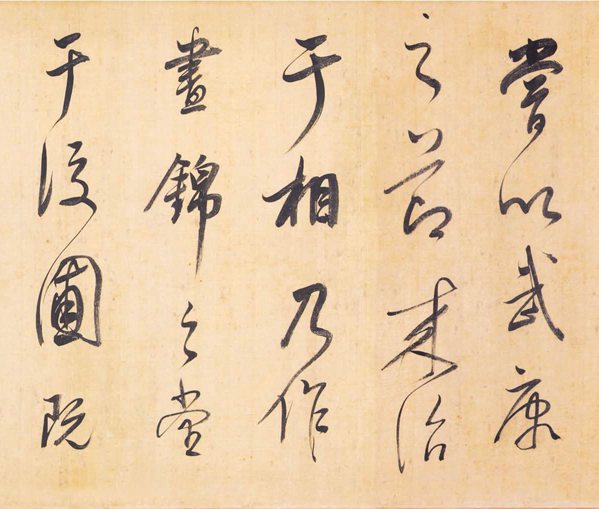 嘗以武康
之節来治
于相乃作
晝錦之堂
于後圃既